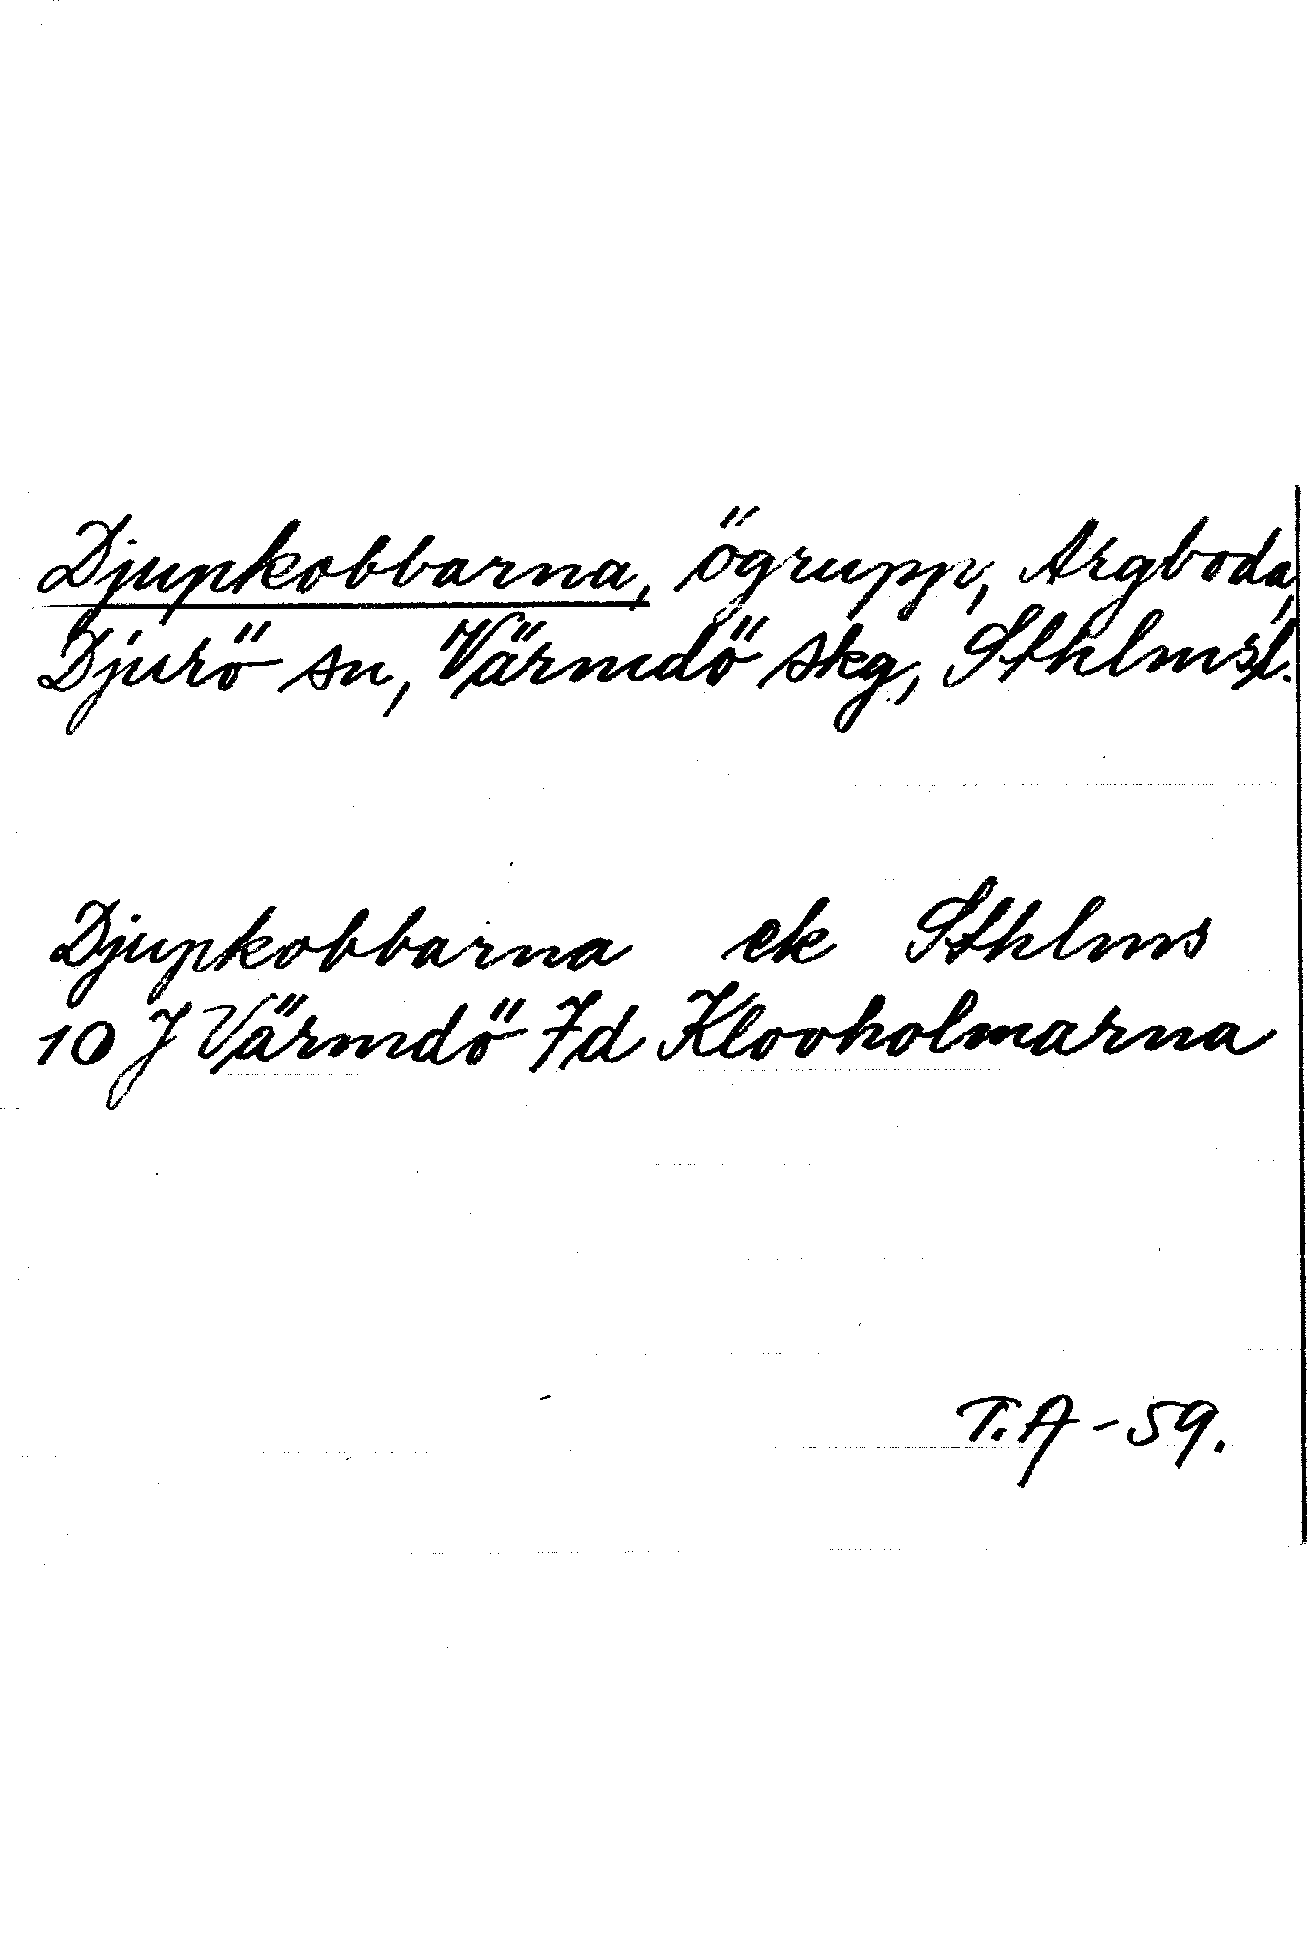 Djupkobbarna, ögrupp, Argboda,
Djurö sn, Värmdö skg, Sthlmsl.
Djupkobbarna ek Sthlms
10 J Värmdö 7d Klovholmarna
T.A - 59.